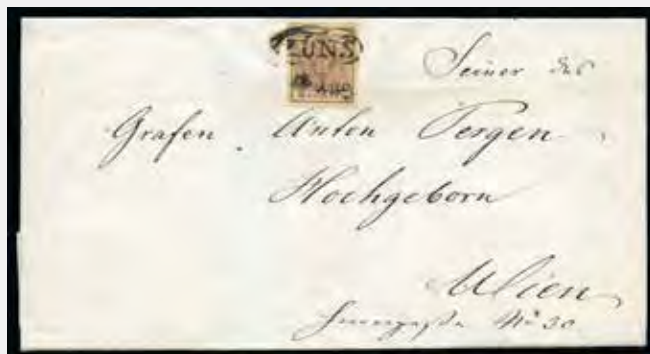 GUNS
AUG
Seiner des
Grafen Anton Pergen
Hochgeborn
Wien
No 30